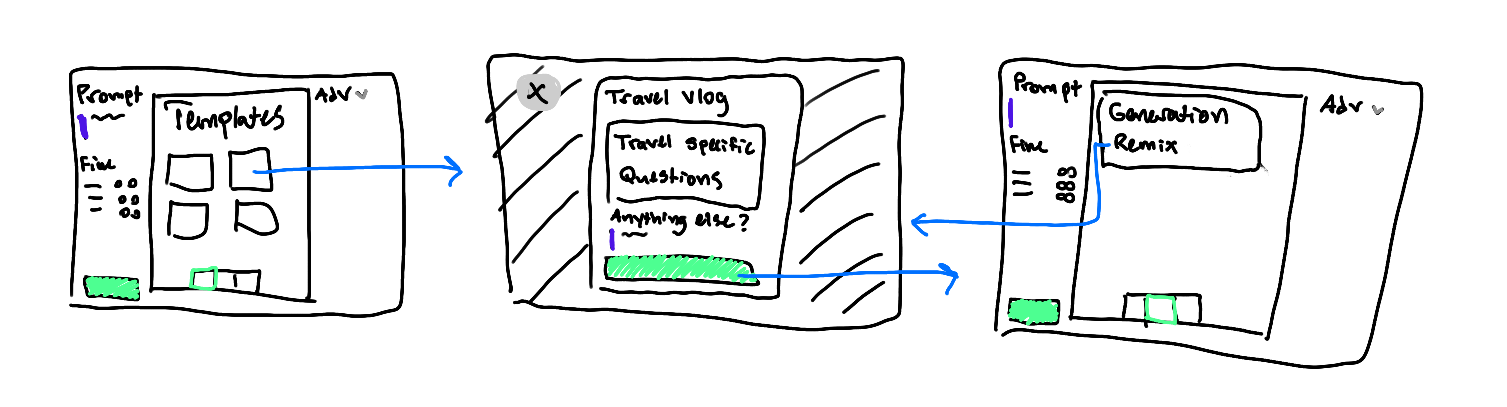 Prompt
Fine
Templates
Adv
X
Travel Vlog
Travel specific
Questions
Anything else?
Prompt
Fine
Generation
Remix
Adv